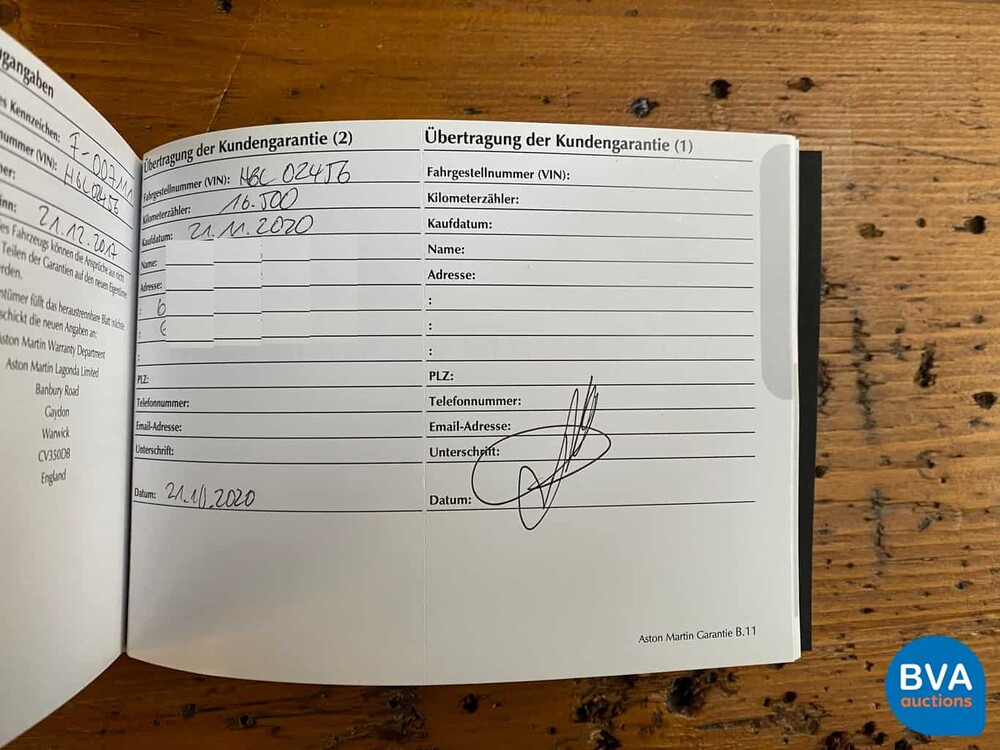 gangaben
es Kennzeichen: F-007111
nummer (VIN): HGL02456
ner:
inn: 21.12.2017
es Fahrzeugs können die Ansprüche aus nicht
Teilen der Garantien auf den neuen Eigentümer
erden.
ntümer füllt das heraustrennbare Blatt
schickt die neuen Angaben an:
Aston Martin Warranty Department
Aston Martin Lagonda Limited
Banbury Road
Gaydon
Warwick
CV350DB
England
Übertragung der Kundengarantie (2)
Fahrgestellnummer (VIN): HGL 02456
Kilometerzähler: 16.500
Kaufdatum: 21.11.2020
Name:
Adresse:
: 6
:
:
PLZ:
Telefonnummer:
Email-Adresse:
Unterschrift:
Datum: 21.11.2020
Übertragung der Kundengarantie (1)
Fahrgestellnummer (VIN):
Kilometerzähler:
Kaufdatum:
Name:
Adresse:
:
:
:
PLZ:
Telefonnummer:
Email-Adresse:
Unterschrift:
Datum:
Aston Martin Garantie B.11
BVA
auctions